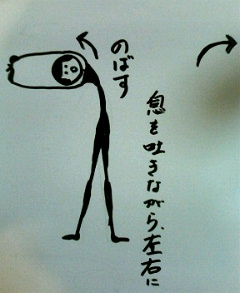 のばす
息を吐きながら、左右に